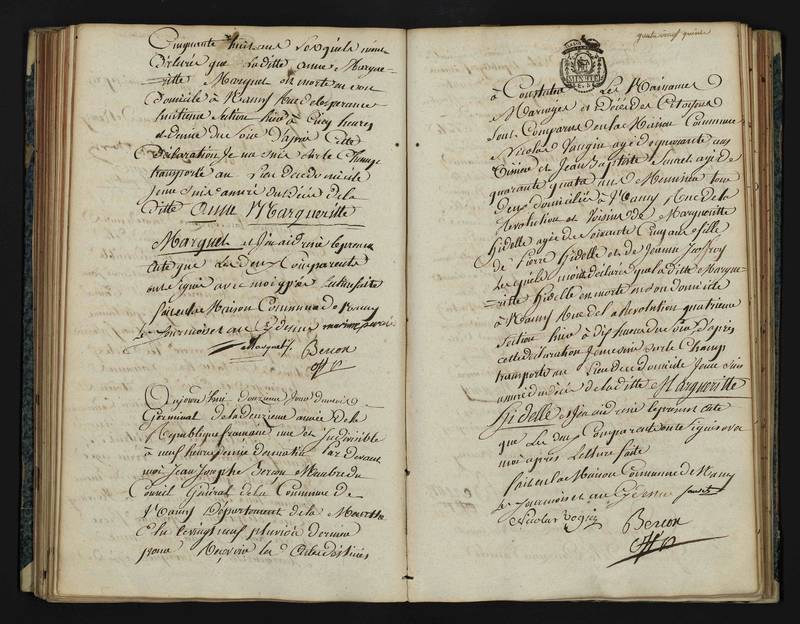 Cinquante huit ans Lesquels m'ont
Déclaré que Laditte anne Margue-
-ritte Marquet est morte en son
Domicile à Nancy Rue de l'esperance
huitieme Section hier à Cinq heures
et demie du soir D'après Cette
Déclaration Je me suis sur le Champ
transporté au Lieu de ce domicile
J'ame suis assuré du Décès de la
Ditte Anne Margueritte
Marquet et J'en ai dressé le present
acte que Les Deux Comparants
ont signé avec moi après Lecture faite
fait en la Maison Commune de Nancy
Les Jour mois et an Cy dessus
Marquet Berson
Off p
Aujourd'hui douzieme Jour du mois de
Germinal de la deuxieme année de la
Republique française une et Indivisible
à neuf heures du matin Par devant
moi Jean Josephe Berson Membre du
Conseil Général de la Commune de
Nancy Département de la Meurthe
Elu le vingt neuf pluviose dernier
pour Recevoir les Actes destinés
quatre vingt quinze
à Constater Les Naissances
Mariages et Décès des Citoyens
Sont Comparus en la Maison Commune
Nicolas Vaugin agé de quarante ans
et Jean Baptiste agé de
quarante quatre ans Menuisier tous
Deux domiciliés à Nancy Rue de la
Revolution et Voisins de Margueritte
hidelle agée de soixante Cinq ans fille
de Pierre hidelle et de Jeanne Jeoffroy
Lesquels m'ont déclaré que la ditte Margue-
-ritte hidelle est morte en son domicile
à Nancy Rue de la Revolution quatrieme
Section hier à dix heures du soir D'après
cette déclaration Je me suis sur le Champ
transporté au Lieu de ce domicile J'ame suis
assuré du décès de la ditte Margueritte
hidelle et J'en ai dressé le present acte
que Les deux Comparants ont signé avec
moi après Lecture faite
fait en la Maison Commune de Nancy
Les Jour mois et an Cy dessus
Nicolas Berson
Off p